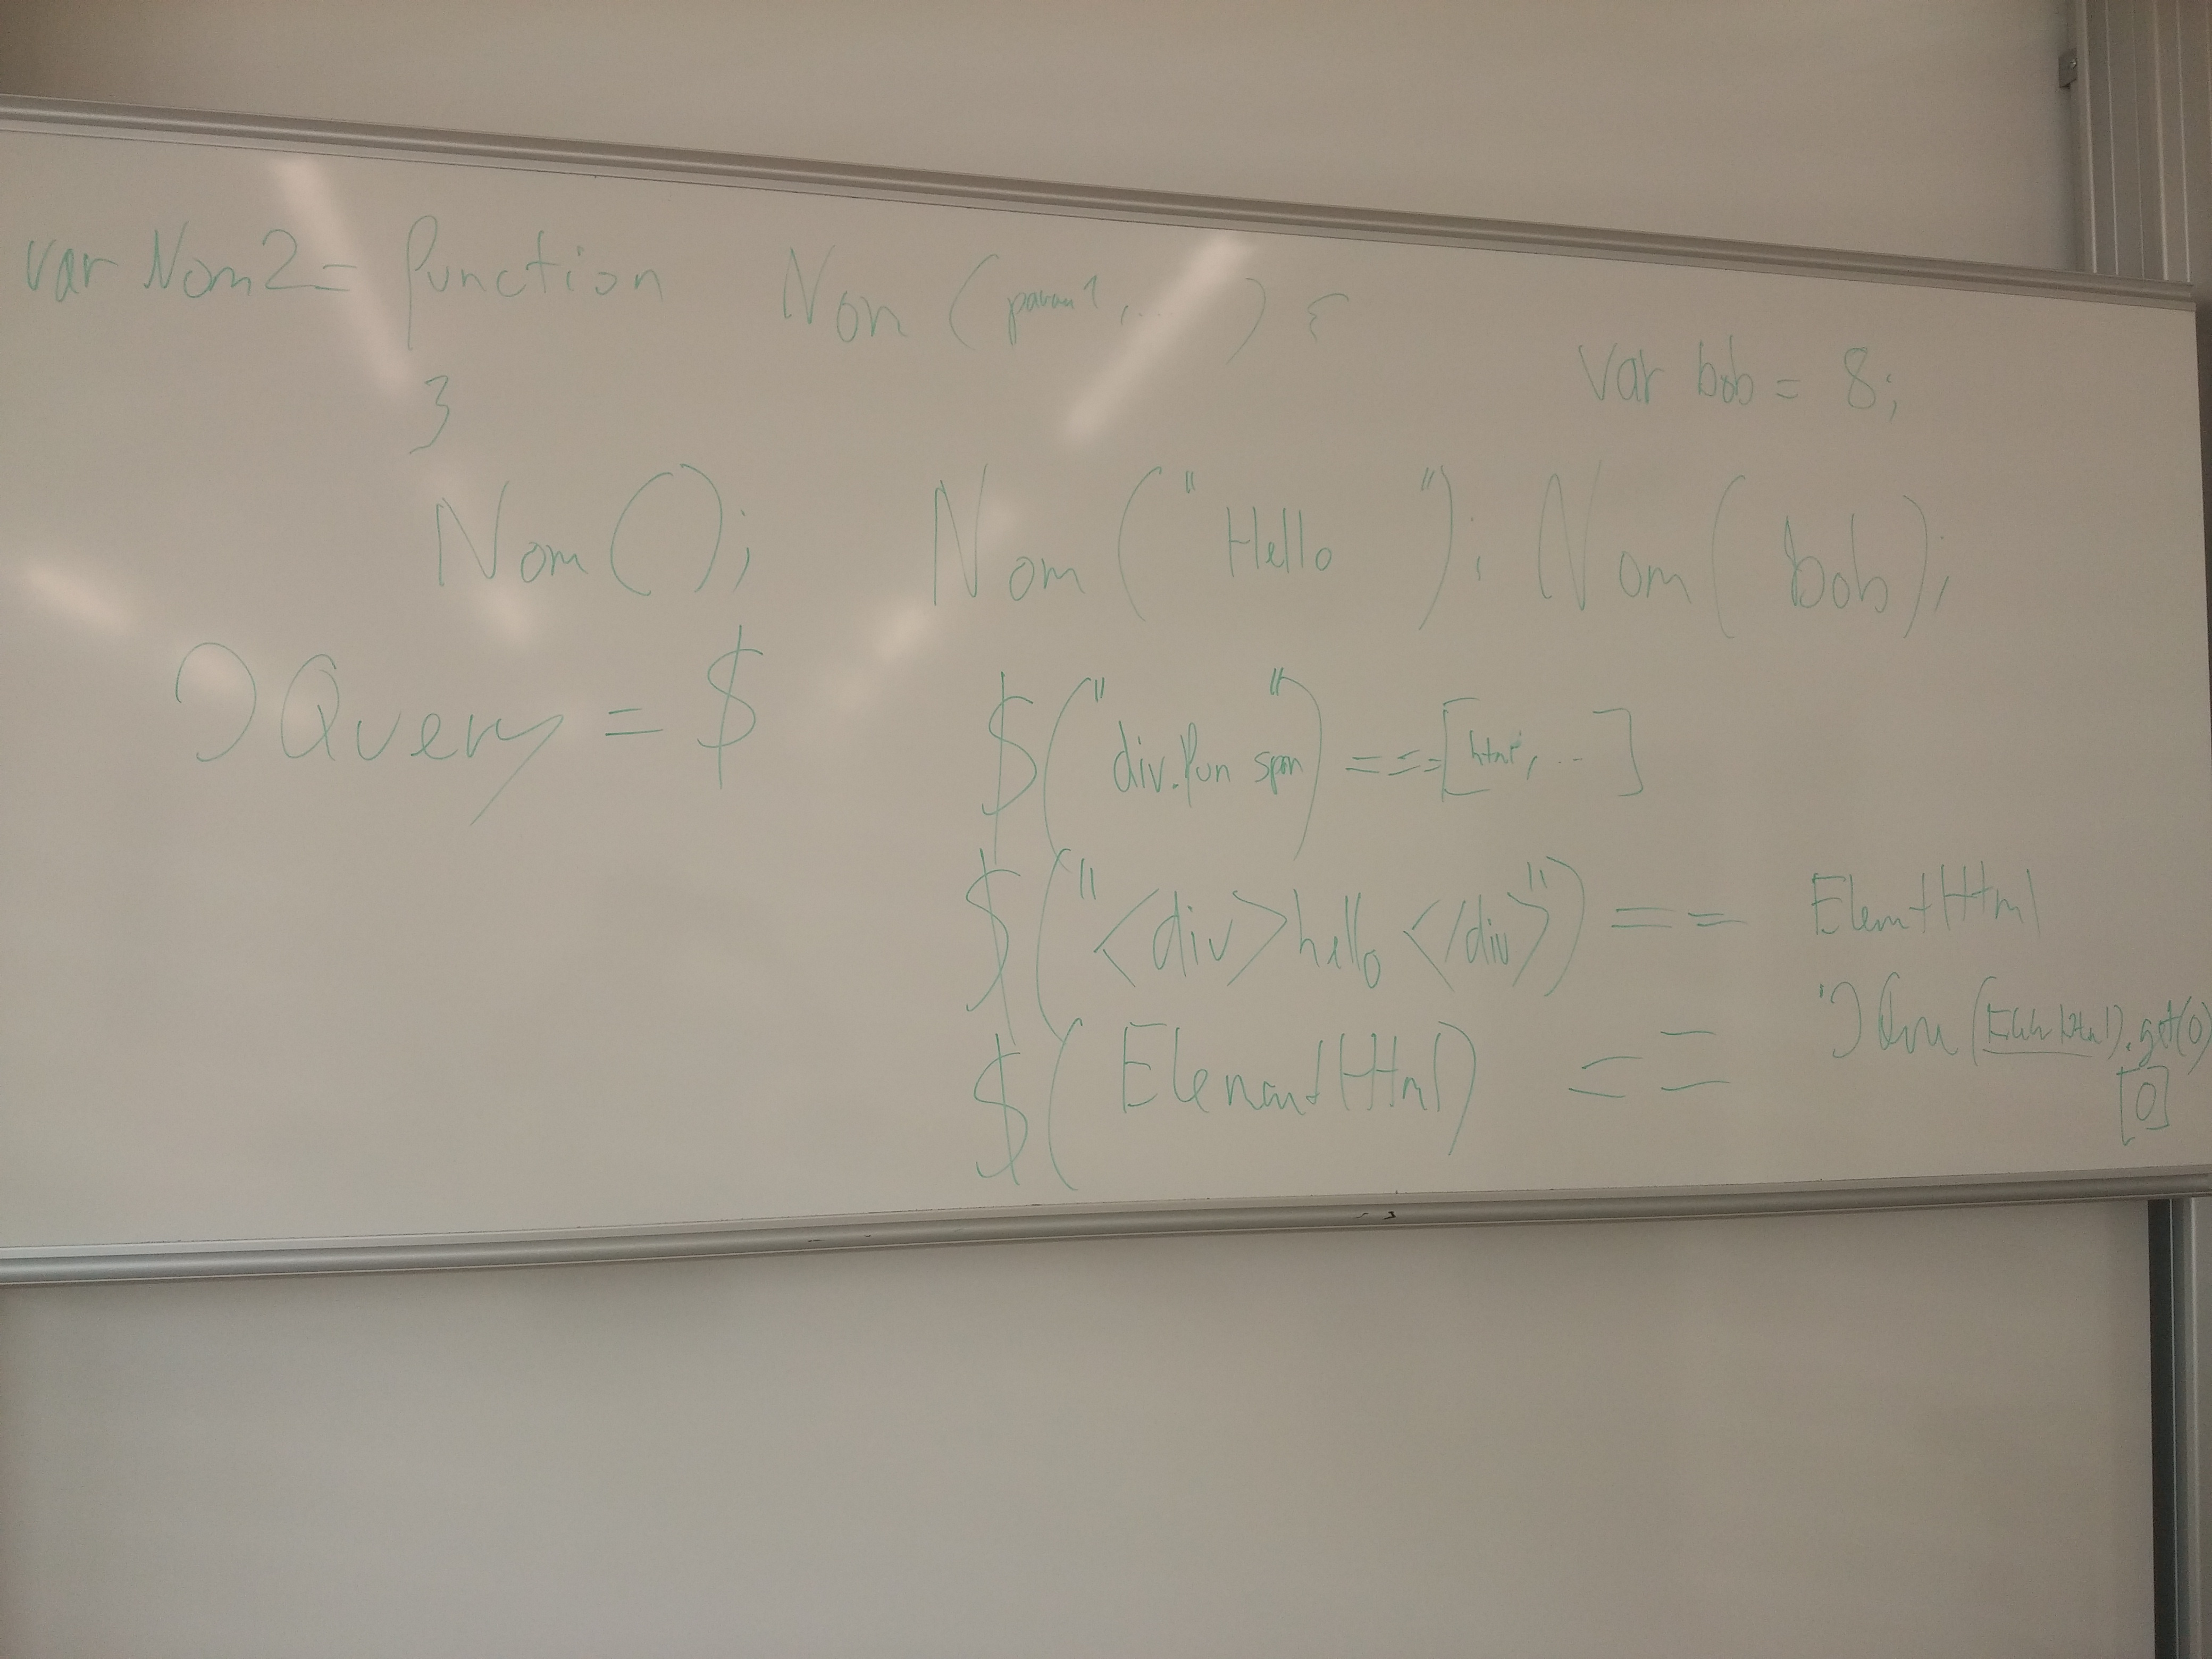 var Nom2 = function Nom (param1, ... ) {
var bob = 8;
}
Nom(); Nom("Hello"); Nom(bob);
JQuery = $
$("div.fun span") === [html, ... ]
$("<div>hello</div>") == ElemtHtml
$(ElementHtml) == JQu ( Html).get(0)
[0]